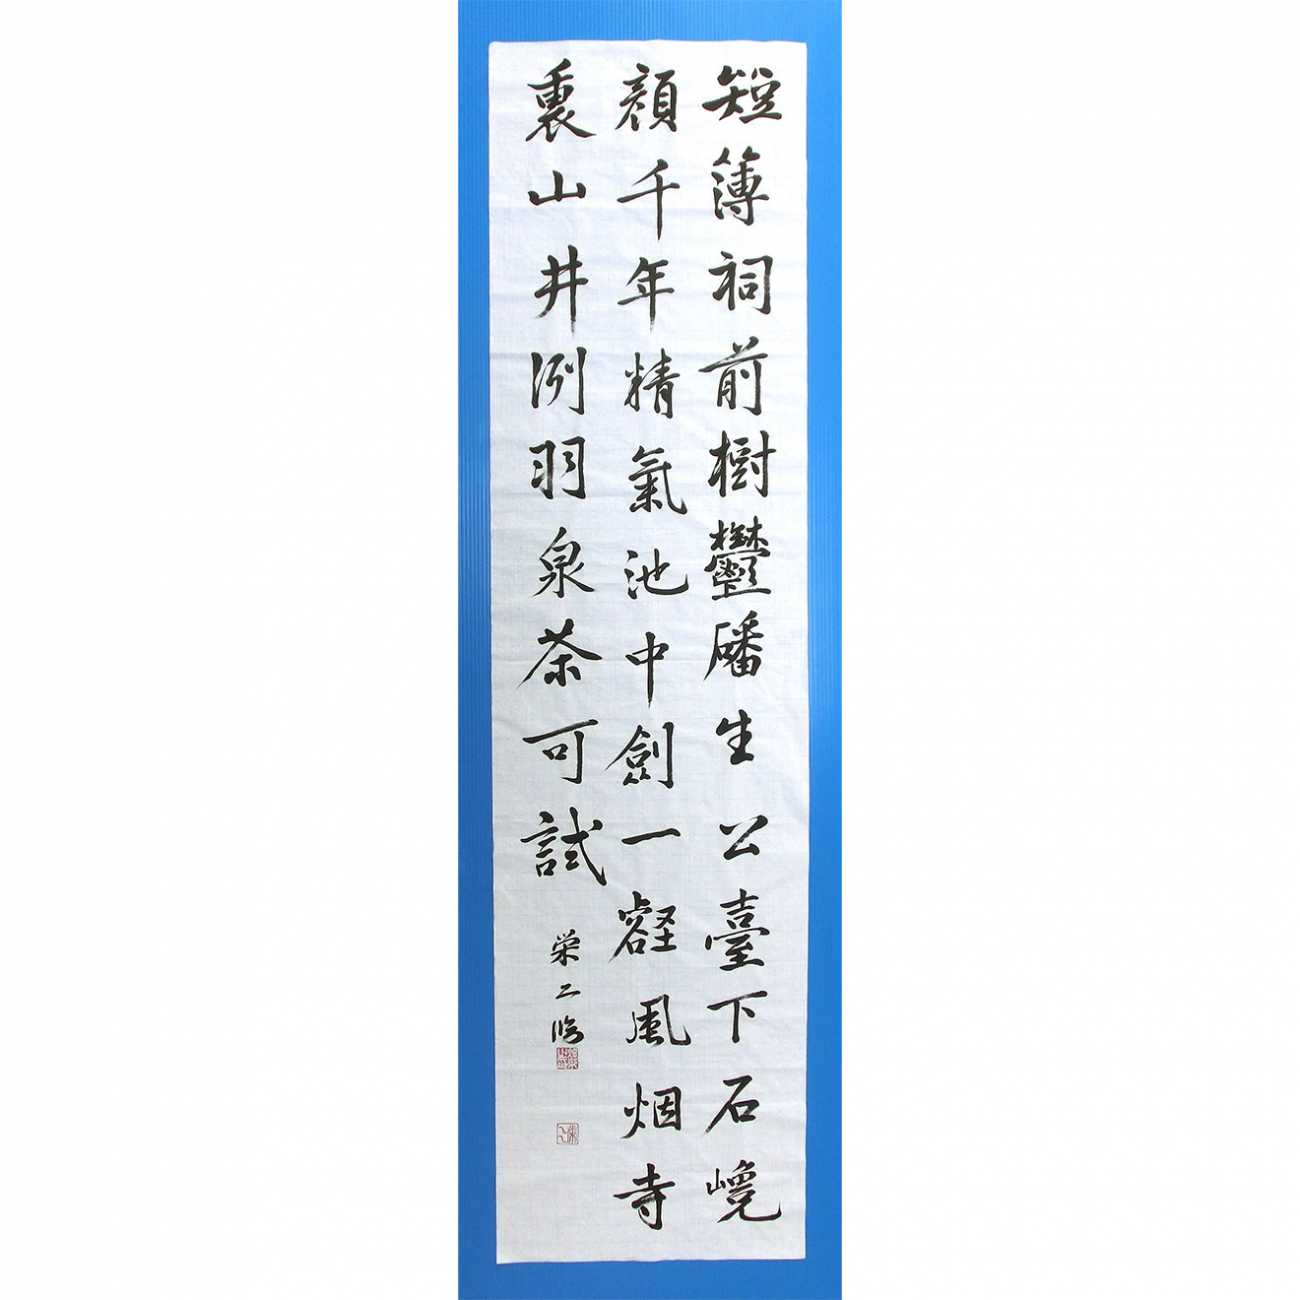 短薄祠前樹鬱磻生公臺下石巉
顔千年精氣池中劍一壑風烟寺
裏山井洌羽泉茶可試
栄二臨